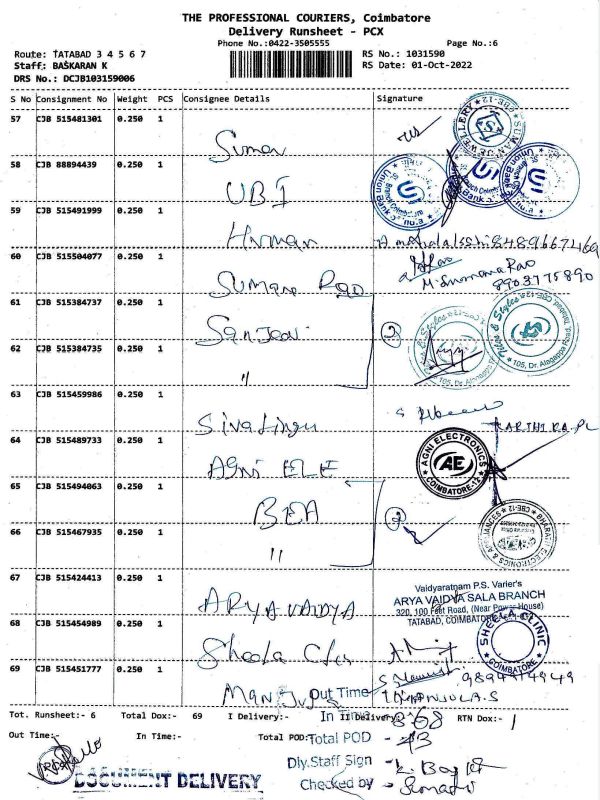 THE PROFESSIONAL COURIERS, Coimbatore
Delivery Runsheet - PCX
Phone No.:0422-3505555
Page No.:6
Route: TATABAD 3 4 5 6 7
RS No.: 1031590
Staff: BASKARAN K
RS Date: 01-Oct-2022
DRS No.: DCJB103159006
S No Consignment No Weight PCS Consignee Details Signature
57 CJB 515481301 0.250 1
Suman
58 CJB 88894439 0.250 1
UBI
59 CJB 515491999 0.250 1
60 CJB 515504077 0.250 1
Sumana Rao
M. Sumana Rao
8903775890
61 CJB 515384737 0.250 1
Sanjeevi
2
62 CJB 515384735 0.250 1
"
63 CJB 515459986 0.250 1
Sivalingu
64 CJB 515489733 0.250 1
AGNI ELE
AGNI ELECTRONICS
AE
COIMBATORE-12
65 CJB 515494063 0.250 1
BEA
2
66 CJB 515467935 0.250 1
"
67 CJB 515424413 0.250 1
ARYA VAIDYA
Vaidyaratnam P.S. Varier's
ARYA VAIDYA SALA BRANCH
320, 100 Feet Road, (Near Power House)
TATABAD, COIMBATORE
68 CJB 515454989 0.250 1
Sheela
SHEELA CLINIC
COIMBATORE
69 CJB 515451777 0.250 1
MANJULA.S
Out Time
Tot. Runsheet:- 6 Total Dox:- 69 I Delivery:- II Delivery:- RTN Dox:- 1
In Time
68
Out Time:- In Time:- Total POD:-
Total POD
Dly.Staff Sign
Checked by
DOCUMENT DELIVERY